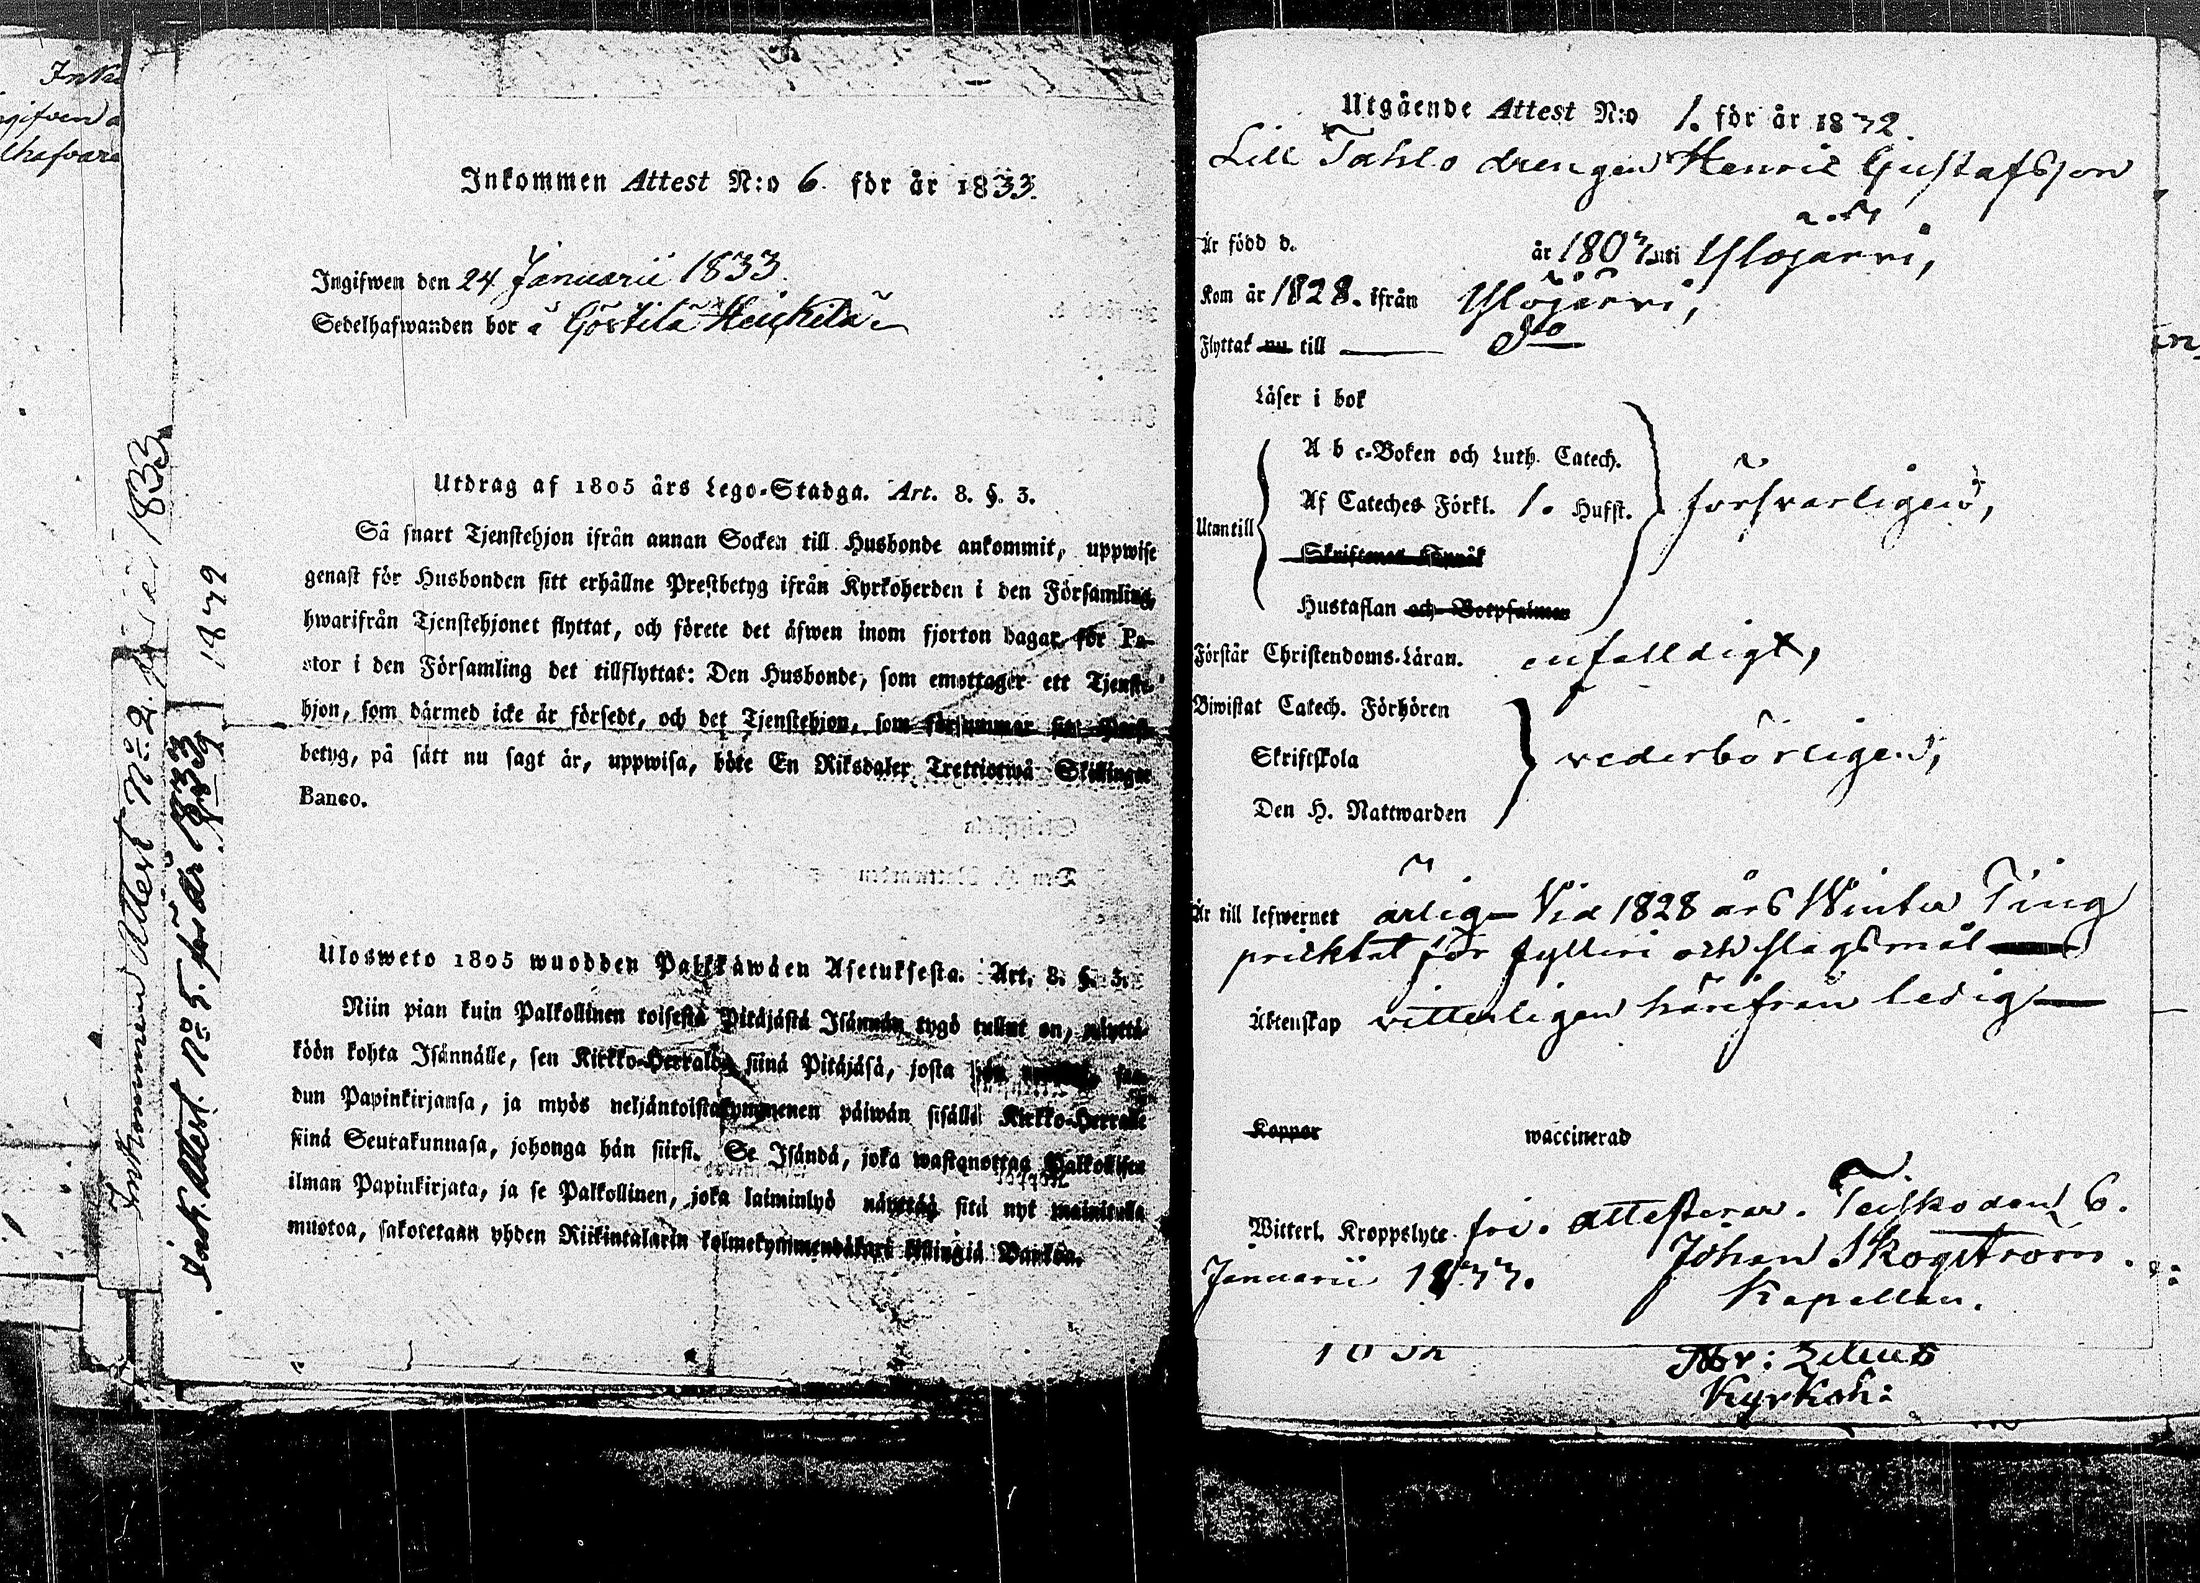 Inkommen Attest N:o 6. för år 1833.
Ingifwen den 24 Januarii 1833.
Sedelhafwanden bor å Görtilä Heickilä
Utdrag af 1805 års Lego-Stadga. Art. 8. §. 3.
Så snart Tjenstehjon ifrån annan Socken till Husbonde ankommit, uppwise
genast för Husbonden sitt erhållne Prestbetyg ifrån Kyrkoherden i den Församling,
hwarifrån Tjenstehjonet flyttat, och förete det äfwen inom fjorton dagar för Pa-
stor i den Församling det tillflyttat: Den Husbonde, som emottager ett Tjenste-
hjon, som därmed icke är försedt, och det Tjenstehjon, som försummar sitt Prest-
betyg, på sätt nu sagt är, uppwisa, böte En Riksdaler Trettiotwå Skillingar
Banco.
Ulosweto 1805 wuodden Palkkawäen Asetuksesta. Art. 8. §. 3.
Niin pian kuin Palkollinen toisesta Pitäjästä Isännän tygö tullut on, näyttä-
köön kohta Isännälle, sen Kirkko-Herralda siinä Pitäjäsä, josta
dun Papinkirjansa, ja myös neljäntoistakymmenen päiwän sisällä Kirkko-Herralle
siinä Seurakunnasa, johonga hän siirsi. Se Isändä, joka wastanottaa Palkollisen
ilman Papinkirjata, ja se Palkollinen, joka laiminlyö näyttää sitä nyt mainitulla
muotoa, sakotetaan yhden Riikintalarin kolmekymmendäkaxi killingiä Bankoa.
Inkommen Attest No 2. för år 1833
Ink. Attest. No 5. för år 1833
1832
Utgående Attest N:o 1. för år 1832.
Lill Tahlo drengen Henric Gustafsson
Är född d. år 1803 uti Ylöjärvi,
Kom år 1828. ifrån Ylöjärvi,
Flyttat nu till do
Läser i bok
A b c-Boken och Luth. Catech.
Utantill Af Cateches Förkl. 1. Hufst. försvarligen,
Hustaflan och Botpsalmen
Förstår Christendoms-Läran. enfalldigt,
Biwistat Catech. Förhören
Skriftskola vederbörligen,
Den H. Nattwarden
Är till lefwernet ärlig Vid 1828 års Winter Ting
pliktat för fylleri och slagsmål
Äktenskap vitterligen härifrån ledig
Koppor waccinerad
Witterl. Kroppslyte fri. attesterar. Teisko den 6.
Januarii 1833. Johan Skogström.
Kapellan.
Kyrkoh: